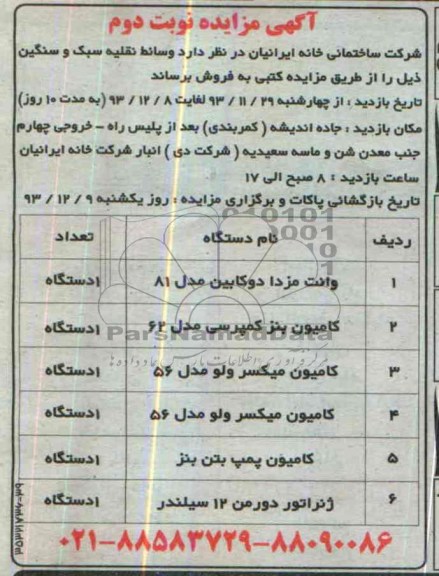 آگهی مزایده نوبت دوم
شرکت ساختمانی خانه ایرانیان در نظر دارد وسائط نقلیه سبک و سنگین
ذیل را از طریق مزایده کتبی به فروش برساند
تاریخ بازدید : از چهارشنبه ۲۹ / ۱۱ / ۹۳ لغایت ۸ / ۱۲ / ۹۳ (به مدت ۱۰ روز)
مکان بازدید : جاده اندیشه ( کمربندی) بعد از پلیس راه - خروجی چهارم
جنب معدن شن و ماسه سعیدیه ( شرکت دی ) انبار شرکت خانه ایرانیان
ساعت بازدید : ۸ صبح الی ۱۷
تاریخ بازگشائی پاکات و برگزاری مزایده : روز یکشنبه ۹ / ۱۲ / ۹۳
ردیف نام دستگاه تعداد
۱ وانت مزدا دوکابین مدل ۸۱ ۱دستگاه
۲ کامیون بنز کمپرسی مدل ۶۲ ۱دستگاه
ParsNamadData
۳ کامیون میکسر ولو مدل ۵۶ ۱دستگاه
۴ کامیون میکسر ولو مدل ۵۶ ۱دستگاه
۵ کامیون پمپ بتن بنز ۱دستگاه
۶ ژنراتور دورمن ۱۲ سیلندر ۱دستگاه
۰۲۱-۸۸۵۸۳۷۲۹-۸۸۰۹۰۰۸۶